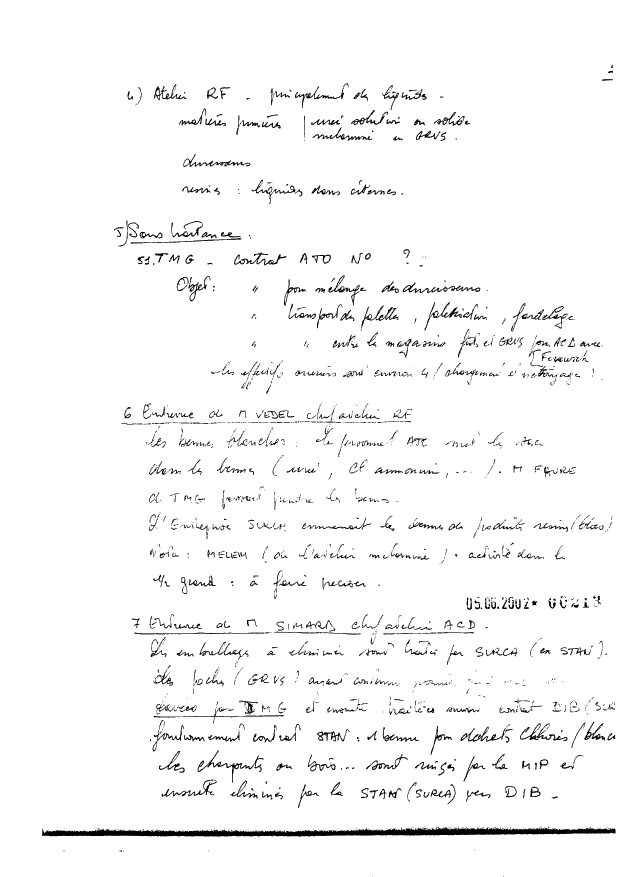 4) Atelier RF - principalement des liquides -
matières premières | urée solution ou solide
mélamine en GRVS.
durcisseurs
résines : liquides dans citernes.
5) Sous traitance :
51. TMG - contrat ATO N° ?
Objet : " pour mélange des durcisseurs.
" transport des palettes, palettisation, fardelage
" " entre les magasins fûts et GRVS pour ACD avec
les effectifs ouvriers sont environ 4 / chargement et nettoyage ?
6 Entrevue de M VEDEL chef atelier RF
les bennes blanches : le personnel ATO met les sacs
dans les bennes (urée, Cl ammonium, ...). M FAURE
de TMG faisant prendre les bennes.
L'Entreprise SURCA emmenait les bennes de produits résines (bleues)
Nota : MELEM (de l'atelier mélamine) : activité dans le
1/2 grand : à faire préciser.
05.06.2002* 00213
7 Entrevue de M SIMARD chef atelier ACD.
Les emballages à éliminer sont traités par SURCA (en STAN).
des poches (GRVS) ayant contenu
par TMG et ensuite traitées suivant contrat DIB (SUR
fonctionnement contrat STAN : 1 benne pour déchets chlorés / blanc
les charpentes en bois... sont rincées par la MIP et
ensuite éliminées par la STAN (SURCA) vers DIB -